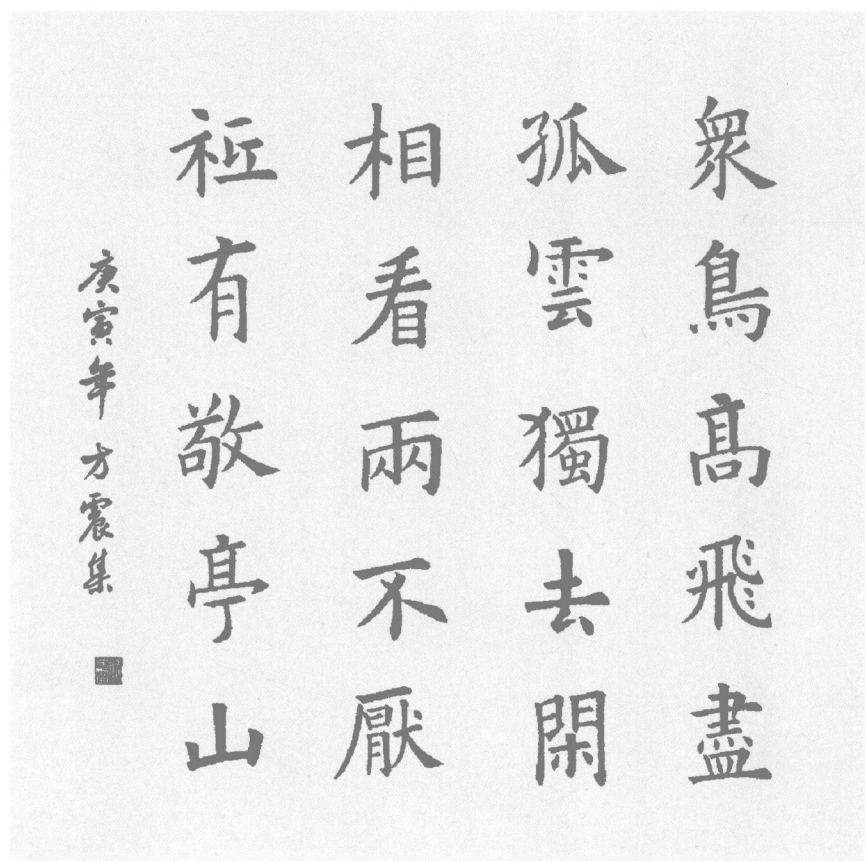 衆鳥髙飛盡
孤雲獨去閑
相看兩不厭
祗有敬亭山
庚寅年方震集